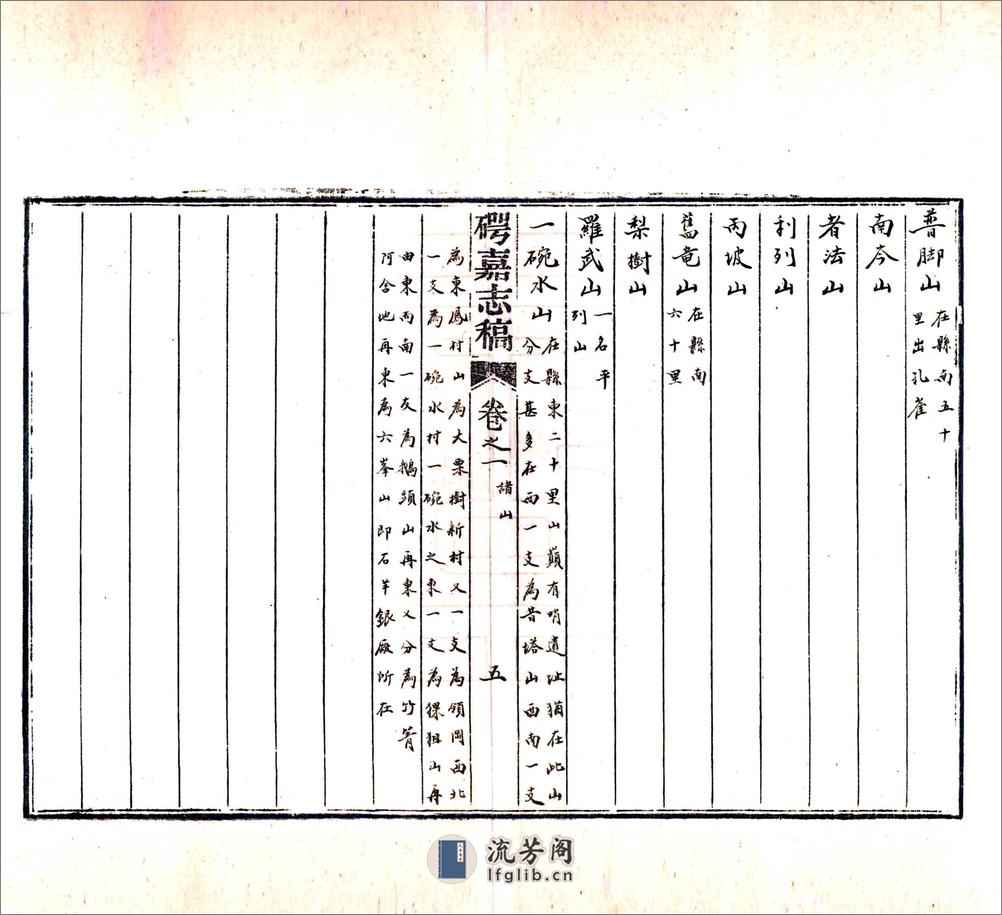 普脚山 在縣南五十
里出孔雀
南夲山
者法山
利列山
丙坡山
舊竜山 在縣南
六十里
梨樹山
羅武山 一名平
列山
一碗水山 在縣東二十里山巔有哨遺址猶在此山
分支甚多在西一支為昔塔山西南一支
碍嘉志稿 卷之一 諸山 五
為東鳳村山為大栗樹新村又一支為領岡西北
一支為一碗水村一碗水之東一支為猓狙山再
由東而南一友為鵝頭山再東又分為竹箐
阿舍地再東為六峯山即石羊銀廠所在
流芳阁
lfglib.cn